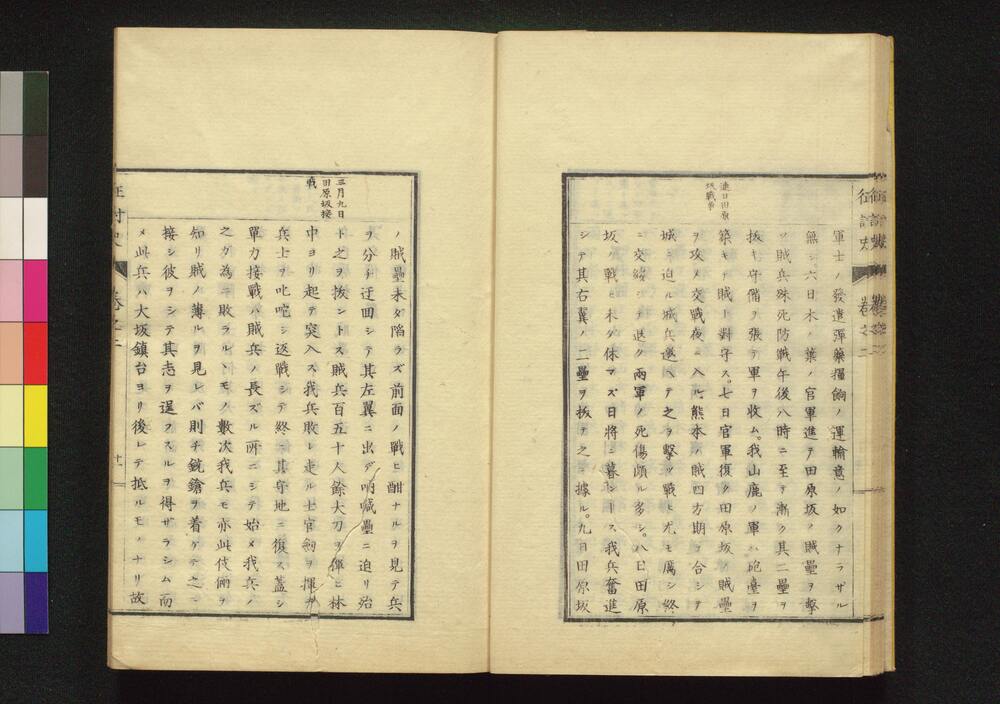 征討史 巻之二
軍士ノ發遣彈藥糧餉ノ運輸意ノ如クナラザル
無シ六日木ノ葉ノ官軍進テ田原坂ノ賊壘ヲ撃
ツ賊兵殊死防戰午後八時ニ至テ漸ク其二壘ヲ
拔キ守備ヲ張テ軍ヲ收ム。我山鹿ノ軍ハ砲臺ヲ
連日田原
坂戰爭
築キテ賊ト對守ス。七日官軍復タ田原坂ノ賊壘
ヲ攻メ交戰夜ニ入ル熊本ノ賊四方期ヲ合シテ
城ニ迫ル城兵邀ヘテ之ヲ擊ツ戰ヒ尤モ厲シ終
ニ交綏シテ退ク兩軍ノ死傷頗ル多シ。八日田原
坂ノ戰ヒ未ダ休マズ日將ニ暮ントス我兵奮進
シテ其右翼ノ二壘ヲ拔テ之ニ據ル。九日田原坂
ノ賊壘未ダ陷ラズ前面ノ戰ヒ酣ナルヲ見テ兵
ヲ分チ迂回シテ其左翼ニ出デ吶喊壘ニ迫リ殆
三月九日
田原坂接
戰
ト之ヲ拔ントス賊兵百五十人餘大刀ヲ揮ヒ林
中ヨリ起テ突入ス我兵敗レ走ル士官劒ヲ揮ヒ
兵士ヲ叱咤シ返戰シテ終ニ其守地ニ復ス蓋シ
單刀接戰ハ賊兵ノ長ズル所ニシテ始メ我兵ノ
之ガ為ニ敗ラルヽモノ數次我兵モ亦此伎倆ヲ
知リ賊ノ薄ルヲ見レバ則チ銃鎗ヲ着ケテ之ニ
接シ彼ヲシテ其志ヲ逞フスルヲ得ザラシム而
メ此兵ハ大坂鎮台ヨリ後レテ抵ルモノナリ故
征討史 巻之二 十一